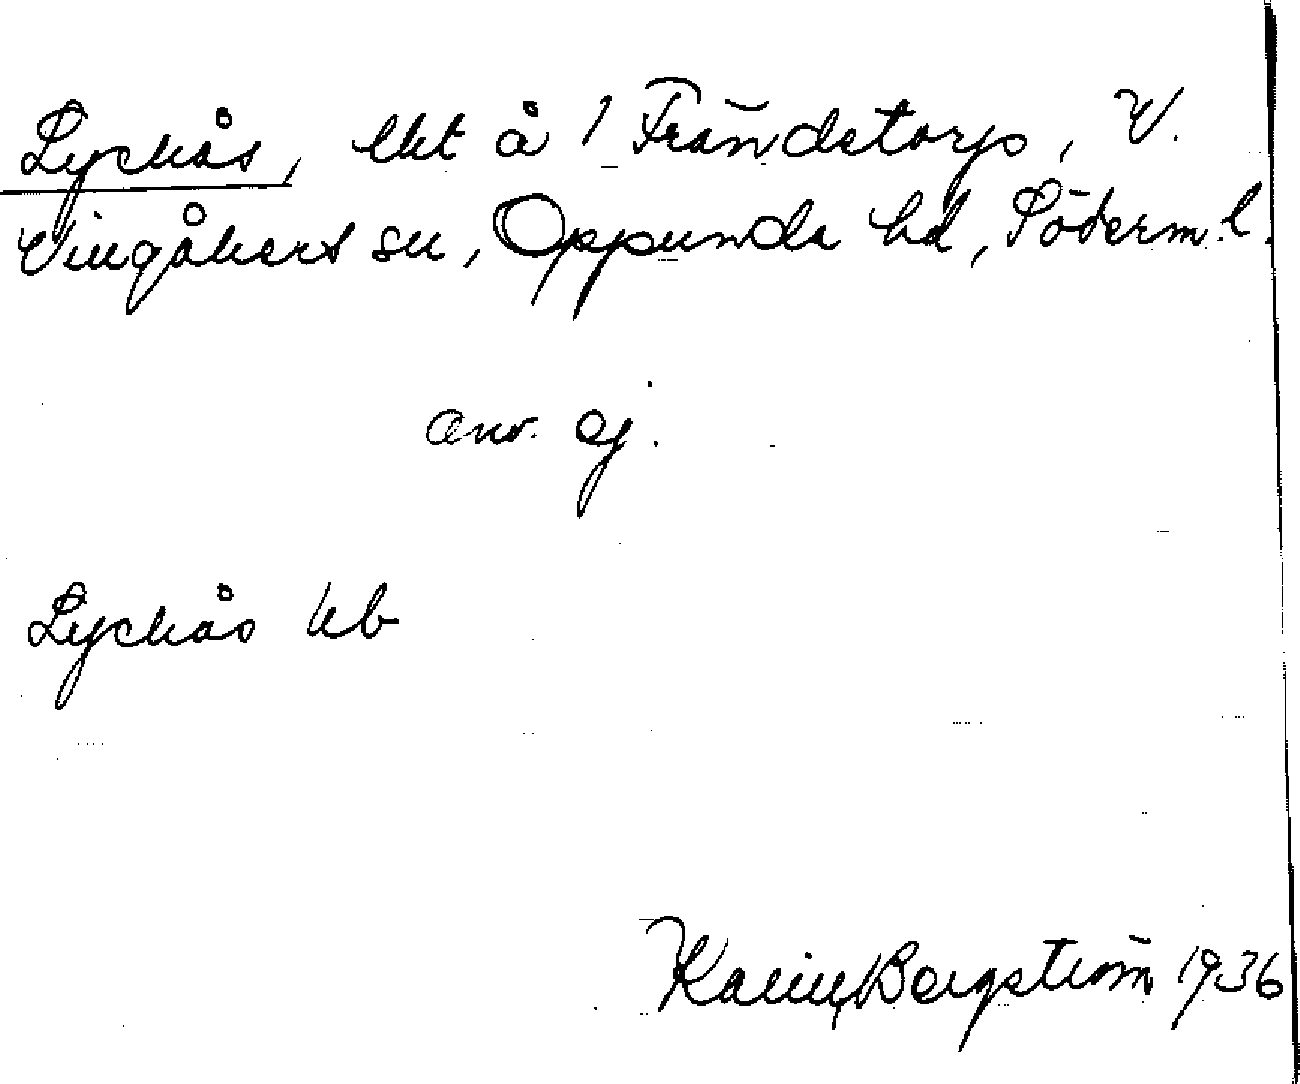 Lyckås, lht å 1 Frändstorp, V.
Vingåkers sn, Oppunda hd, Söderml.
anv. ej.
Lyckås kb
Karin Bergström 1936